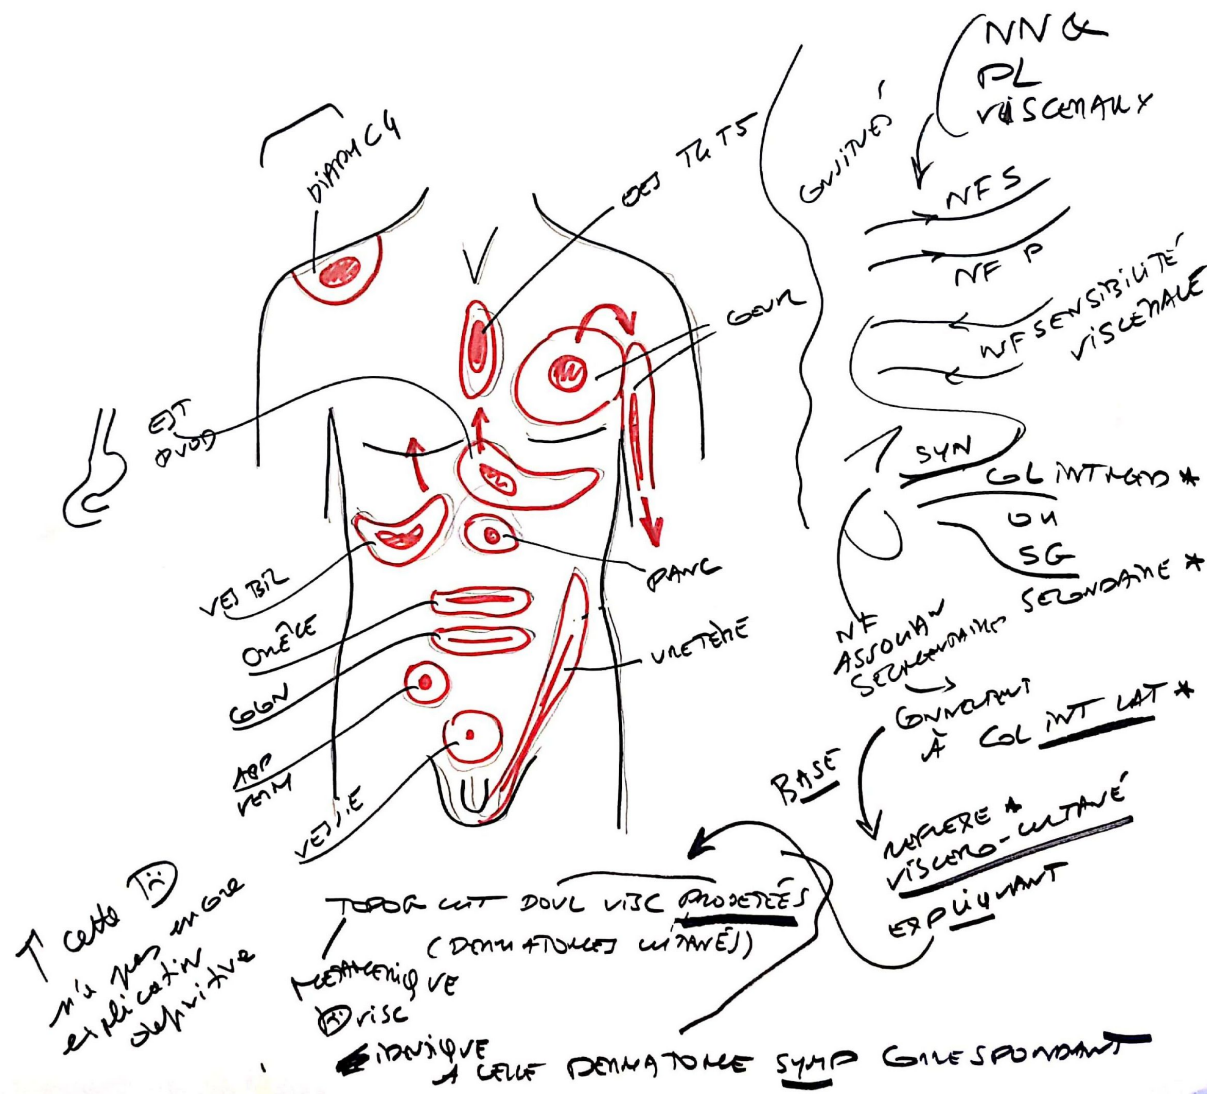 DIAPH C4
OES T4 T5
COEUR
EST
DUOD
VES BIL
PANC
GRÊLE
COLON
URETÈRE
APP
VESSIE
NN &
PL
VISCERAUX
NFS
NF P
NF SENSIBILITÉ
VISCERALE
SYN
COL INTMED *
OU
SG
SECONDAIRE *
NF
CONNECTANT
À COL INT LAT *
BASE
REFLEXE *
VISCERO-CUTANÉ
EXPLIQUANT
TOPOG CUT DOUL VISC PROJETÉES
(DERMATOMES CUTANÉS)
METAMERIQUE
VISC
IDENTIQUE
A CELLE DERMATOME SYMP CORRESPONDANT
↑ cette
n'a pas encore
explication
definitive